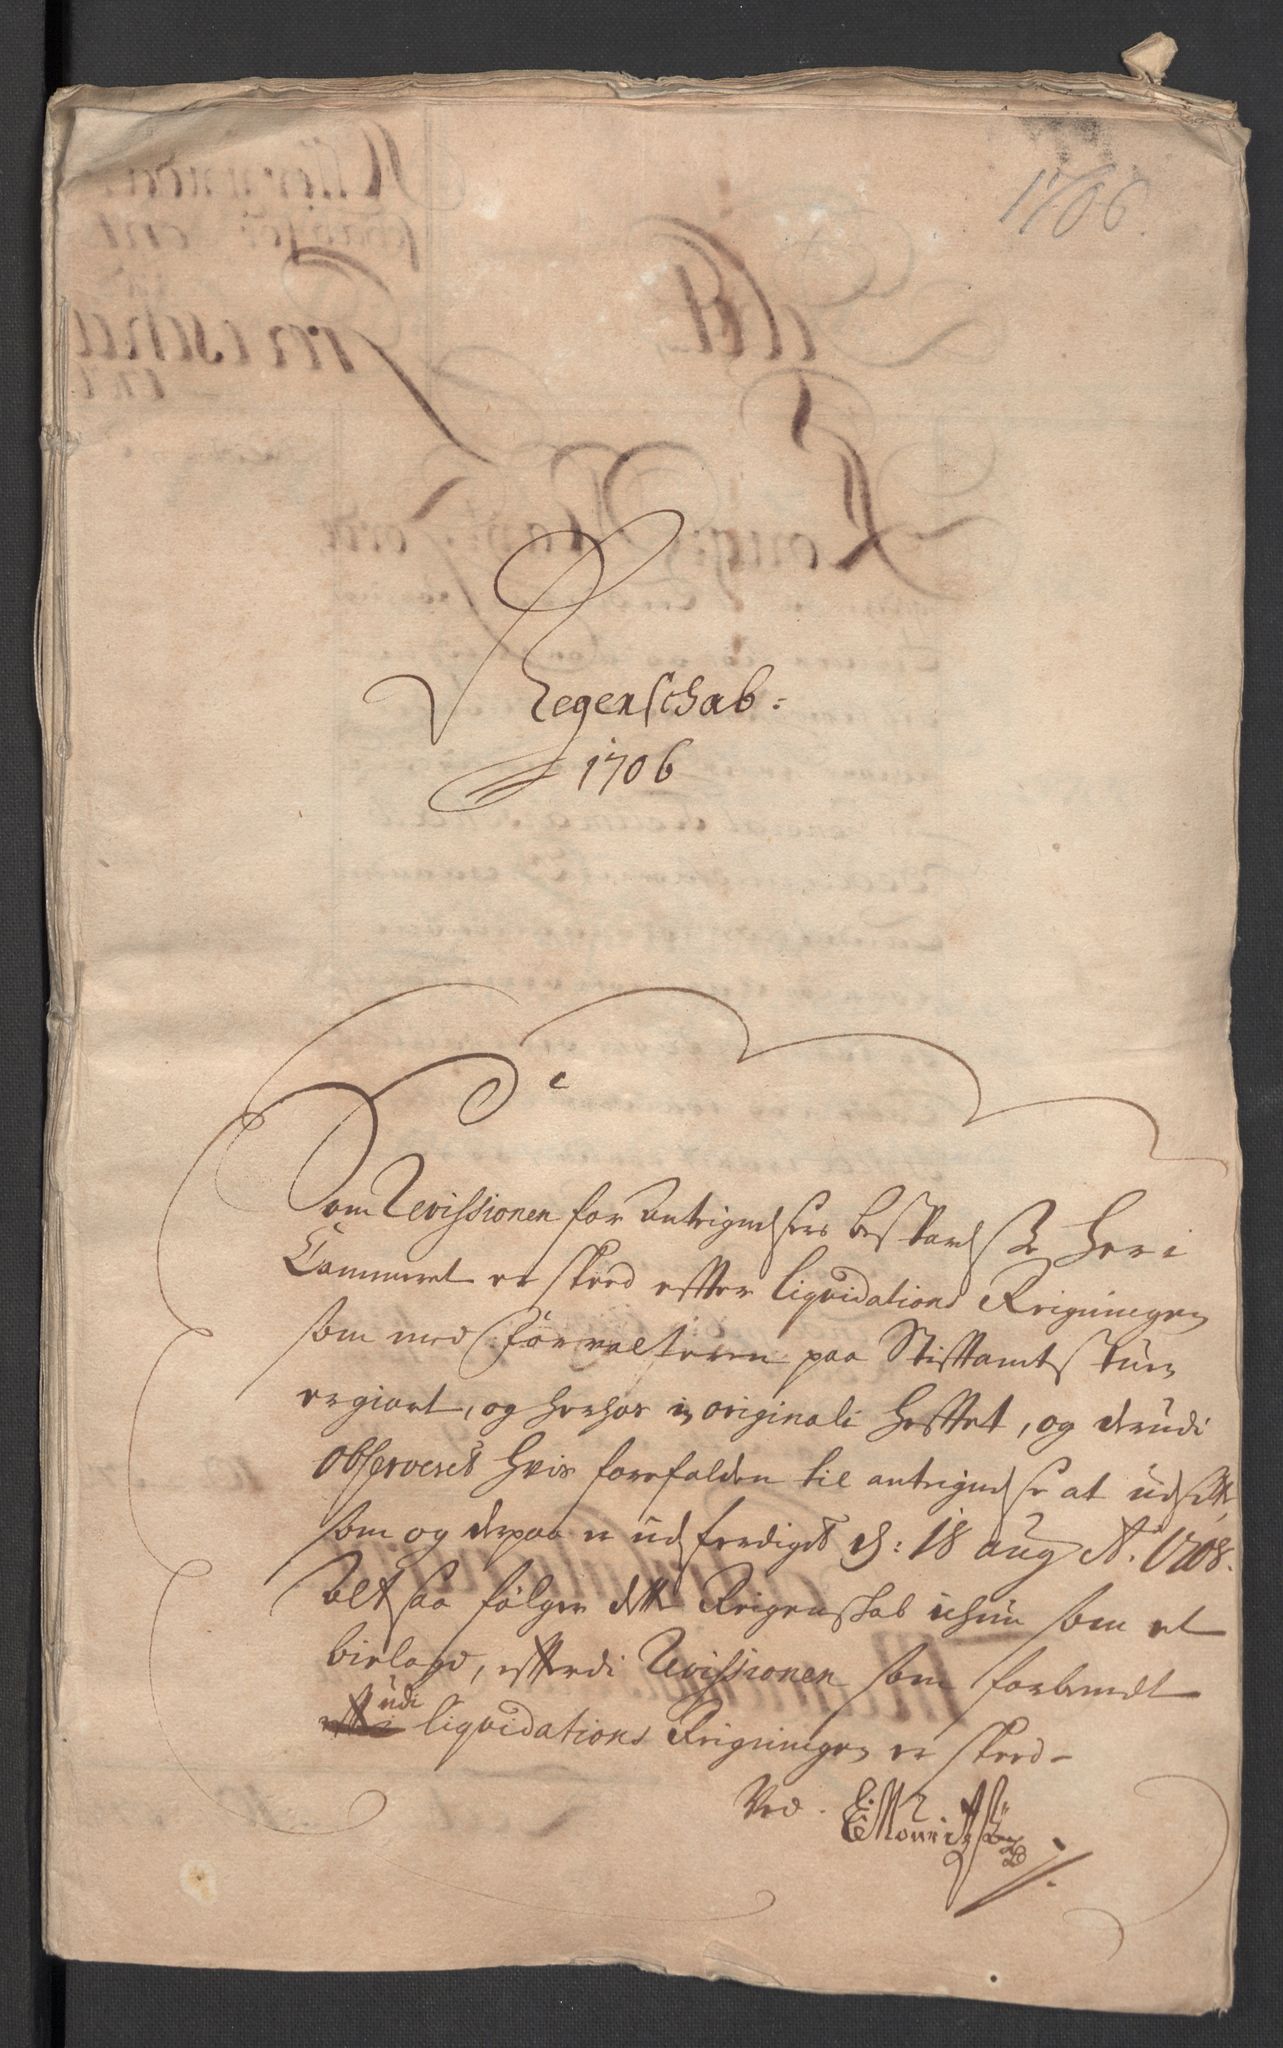 1706.
Regenschab:
1706
Som Revissionen for Antegnelsers bestkand sk her i
Cammeret er skeed effter liqvidations Reigningen
som med Forvalteren paa Stiftamtstuen
ergiort, og herhos in originali hefftet, og derudi
observeret hvis forefalden til antegnelse at udsette,
som og derpaa er udferdiget d: 18 aug Ao. 1708.
Altsaa følger dette Reigenskab ichun som et
bielage, efftterdi Revissionen som forbemelt
udi
liqvidations Reigningen er skeed
Ved.